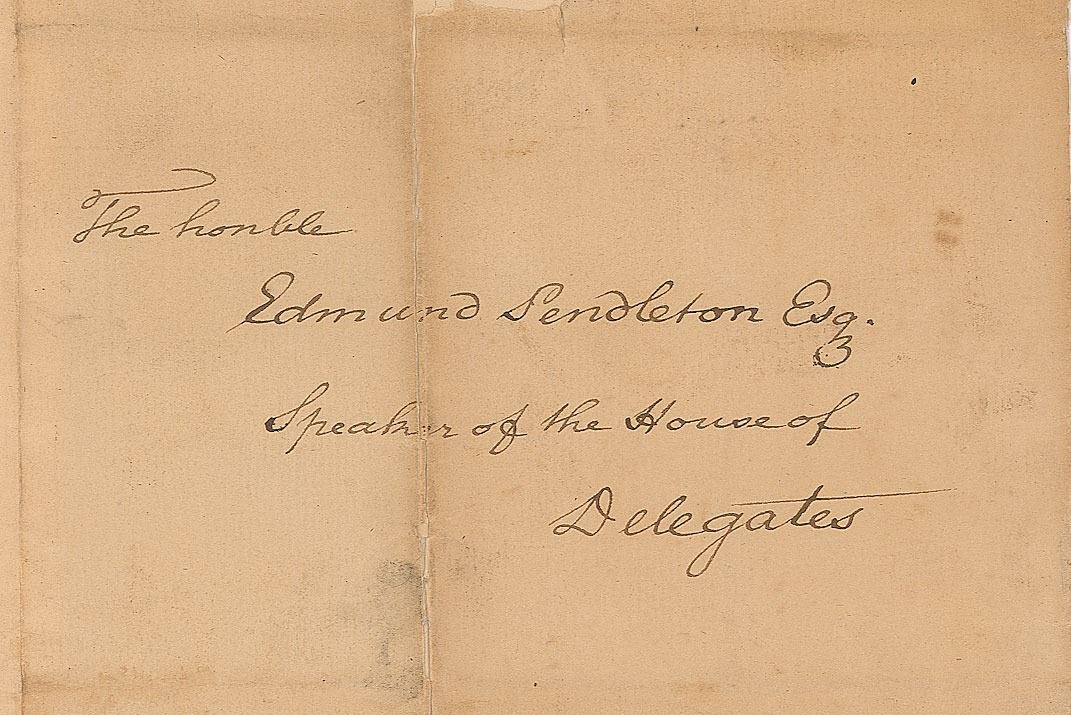 The honble
Edmund Pendleton Esq.
Speaker of the House of
Delegates